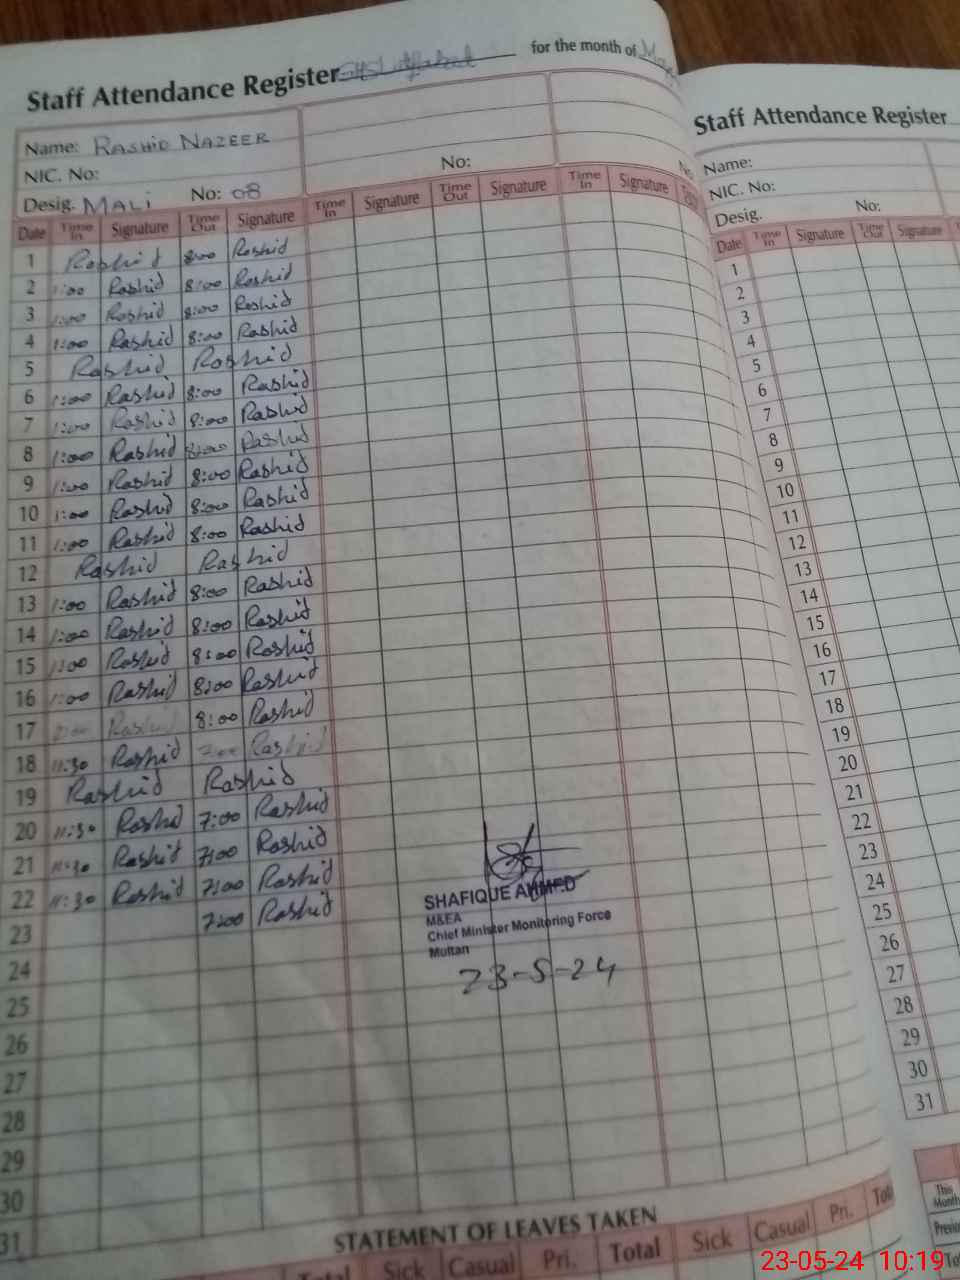 Staff Attendance Register for the month of May
Name: RASHID NAZEER
NIC. No:
Desig. MALI No: 08 No: No
Date Time In Signature Time Out Signature Time In Signature Time Out Signature Time In Signature Time
1 Rashid 8:00 Rashid
2 1:00 Rashid 8:00 Rashid
3 1:00 Rashid 8:00 Rashid
4 1:00 Rashid 8:00 Rashid
5 Rashid Rashid
6 1:00 Rashid 8:00 Rashid
7 1:00 Rashid 8:00 Rashid
8 1:00 Rashid 8:00 Rashid
9 1:00 Rashid 8:00 Rashid
10 1:00 Rashid 8:00 Rashid
11 1:00 Rashid 8:00 Rashid
12 Rashid Rashid
13 1:00 Rashid 8:00 Rashid
14 1:00 Rashid 8:00 Rashid
15 1:00 Rashid 8:00 Rashid
16 1:00 Rashid 8:00 Rashid
17 Rashid 8:00 Rashid
18 11:30 Rashid 7:00 Rashid
19 Rashid Rashid
20 11:30 Rashid 7:00 Rashid
21 11:30 Rashid 7:00 Rashid
22 11:30 Rashid 7:00 Rashid
23 7:00 Rashid
24
25
26
27
28
29
30
31
SHAFIQUE AHMED
M&EA
Chief Minister Monitoring Force
Multan
23-5-24
STATEMENT OF LEAVES TAKEN
Total Sick Casual Pri. Total Sick Casual Pri. Total
Staff Attendance Register
Name:
NIC. No:
Desig. No:
Date Time In Signature Time Out Signature
1
2
3
4
5
6
7
8
9
10
11
12
13
14
15
16
17
18
19
20
21
22
23
24
25
26
27
28
29
30
31
This Month
23-05-24 10:19